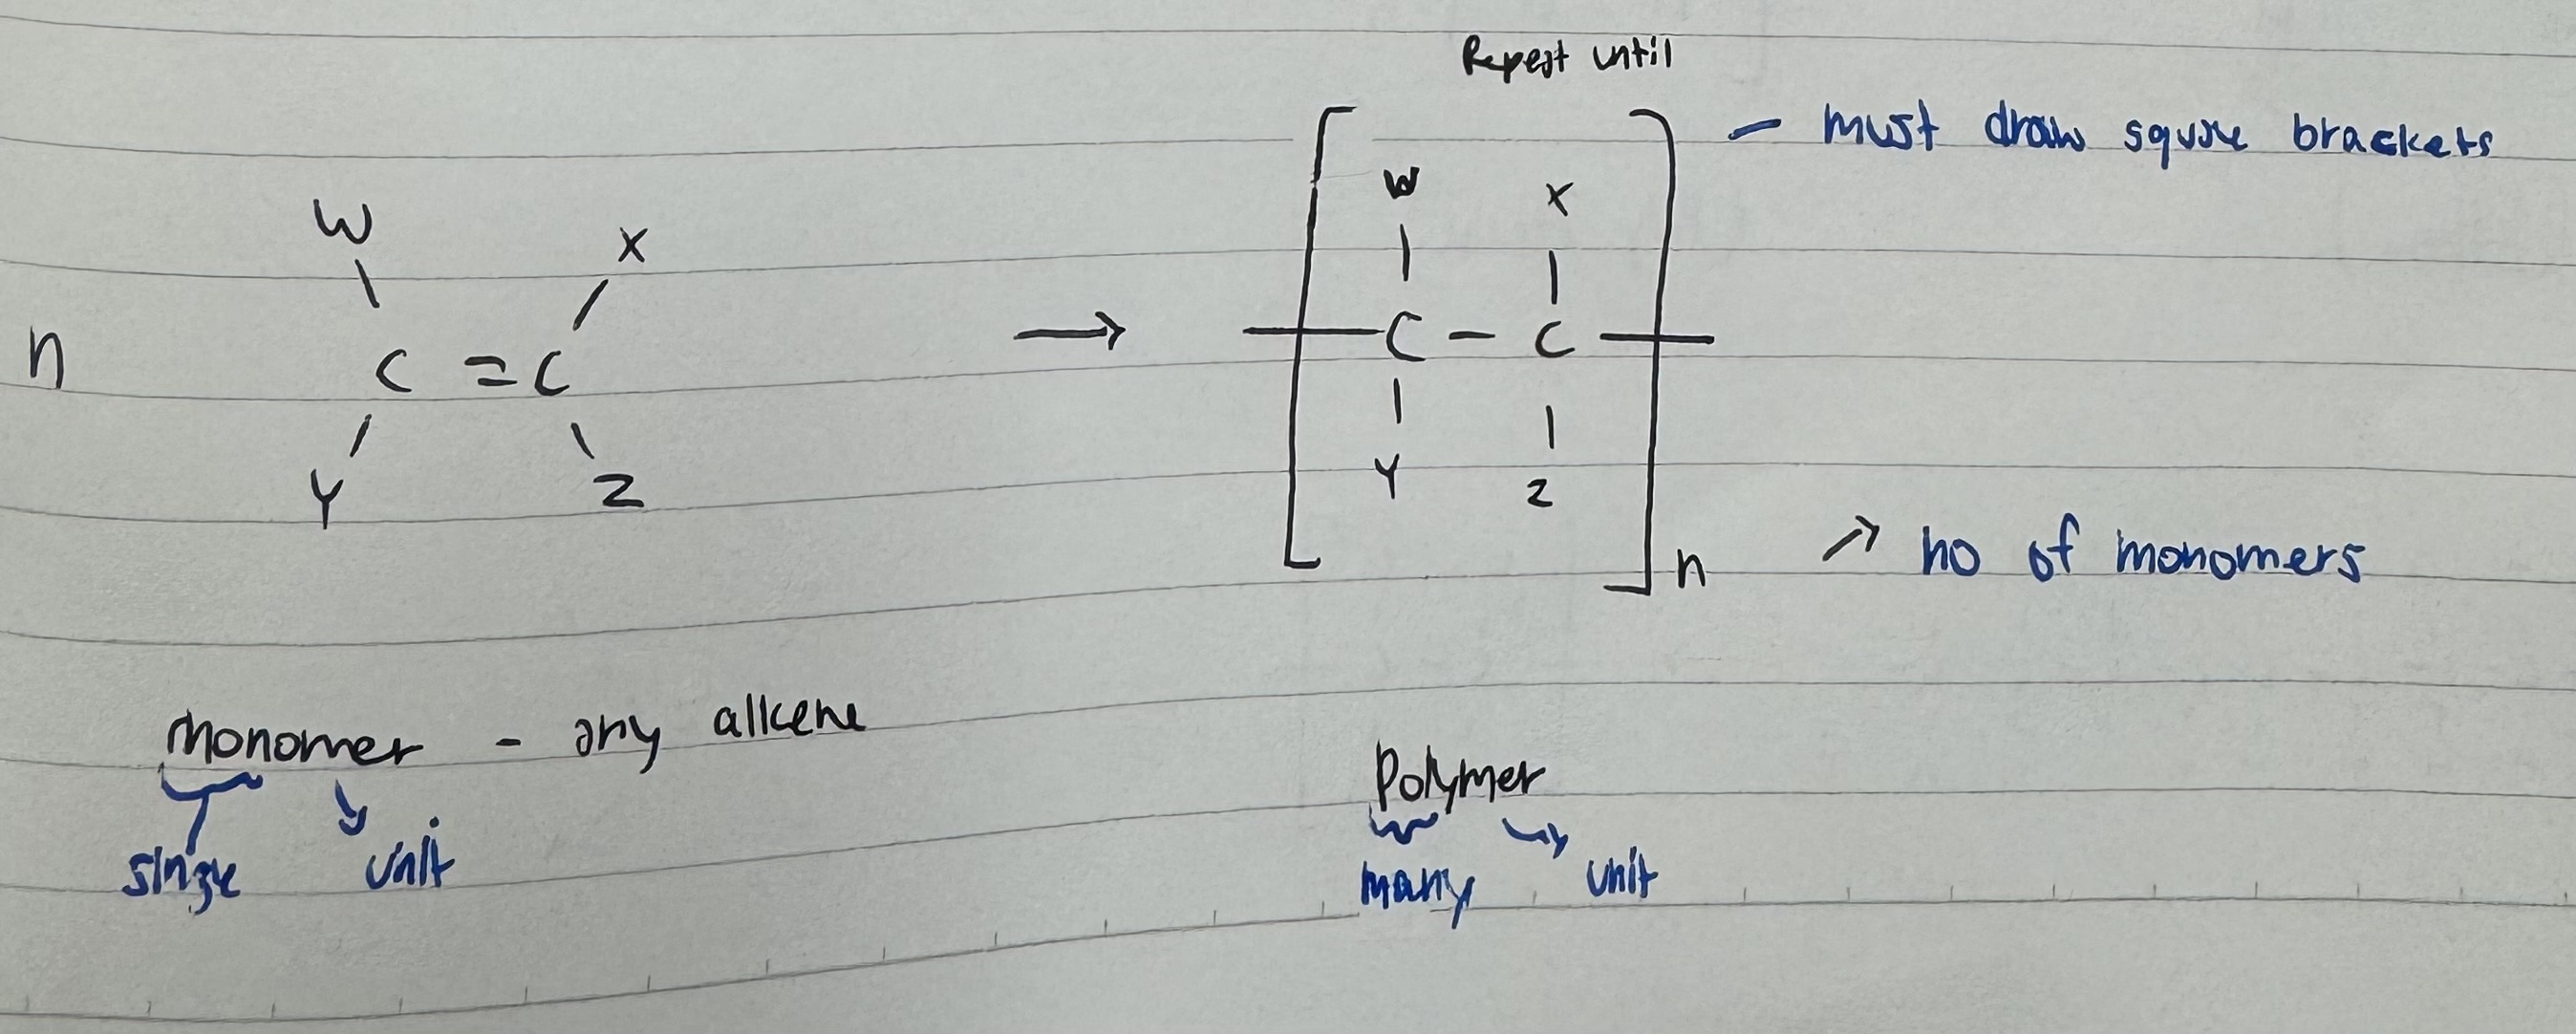 Repeat until
- must draw square brackets
W X
W X
n C = C → C - C
Y Z
Y Z
n ↗ no of monomers
monomer - any alkene
Polymer
single unit
many unit